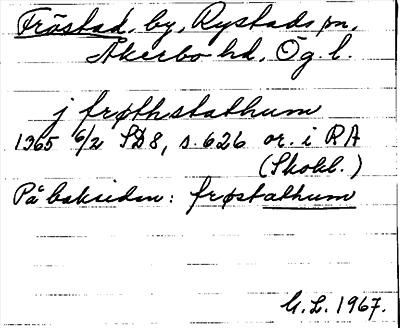 Fröstad, by, Rystads sn,
Åkerbo hd, Ög. l.
j frøthstathum
1365 6/2 SD 8, s. 626 or. i RA
(Skokl.)
På baksidan: frøstathum
G. L. 1967.